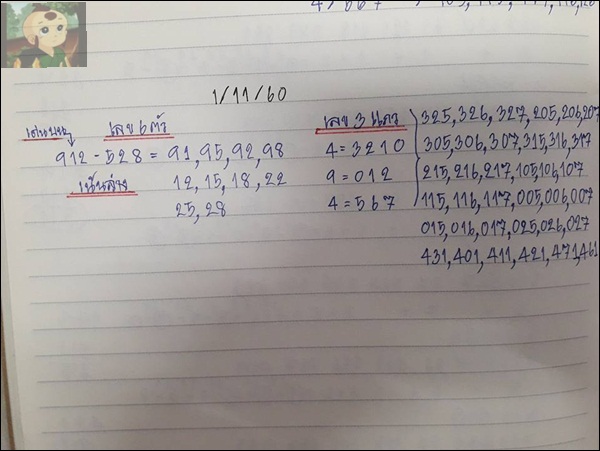 1/11/60
เด่นบน เลข 6 ตัว
912 - 528 = 91, 95, 92, 98
เน้นล่าง 12, 15, 18, 22
25, 28
เลข 3 แถว
4 = 3210
9 = 012
4 = 567
325, 326, 327, 205, 206, 207
305, 306, 307, 315, 316, 317
215, 216, 217, 105, 106, 107
115, 116, 117, 005, 006, 007
015, 016, 017, 025, 026, 027
431, 401, 411, 421, 471, 461